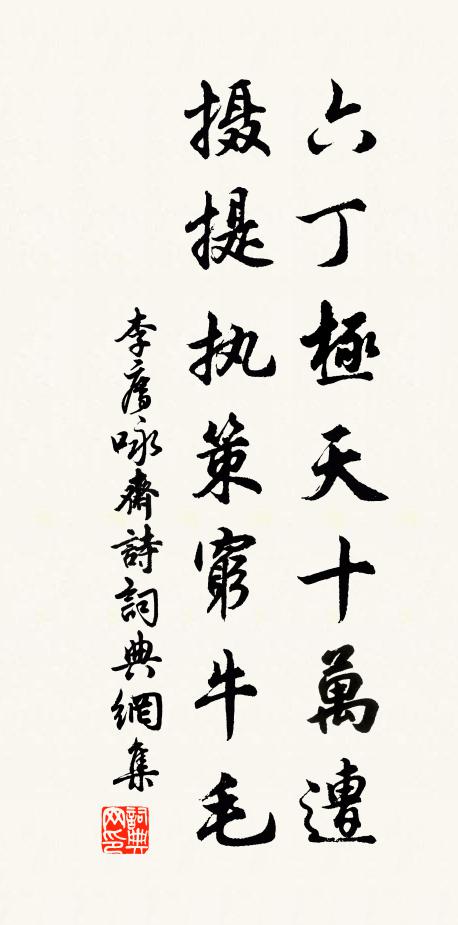 六丁極天十萬遭
摄提执策窮牛毛
李廌咏齋詩詞典網集
詞典网印